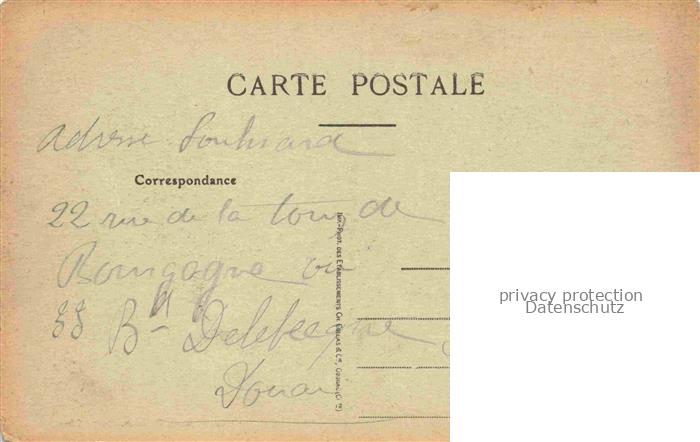 CARTE POSTALE
adresse
Correspondance
22 rue de la tour de
Bourgogne ou
Bd Delebecque
Douai
IMP.-PHOT. DES ETABLISSEMENTS CH.
privacy protection
Datenschutz